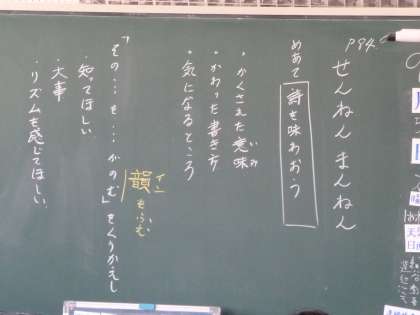 P94
せんねん まんねん
めあて 詩を味わおう
・かくされた意味
いみ
・かわった書き方
・気になるところ
韻をふむ
イン
「その…を…がのむ」をくりかえし
・知ってほしい
・大事
・リズムを感じてほしい。